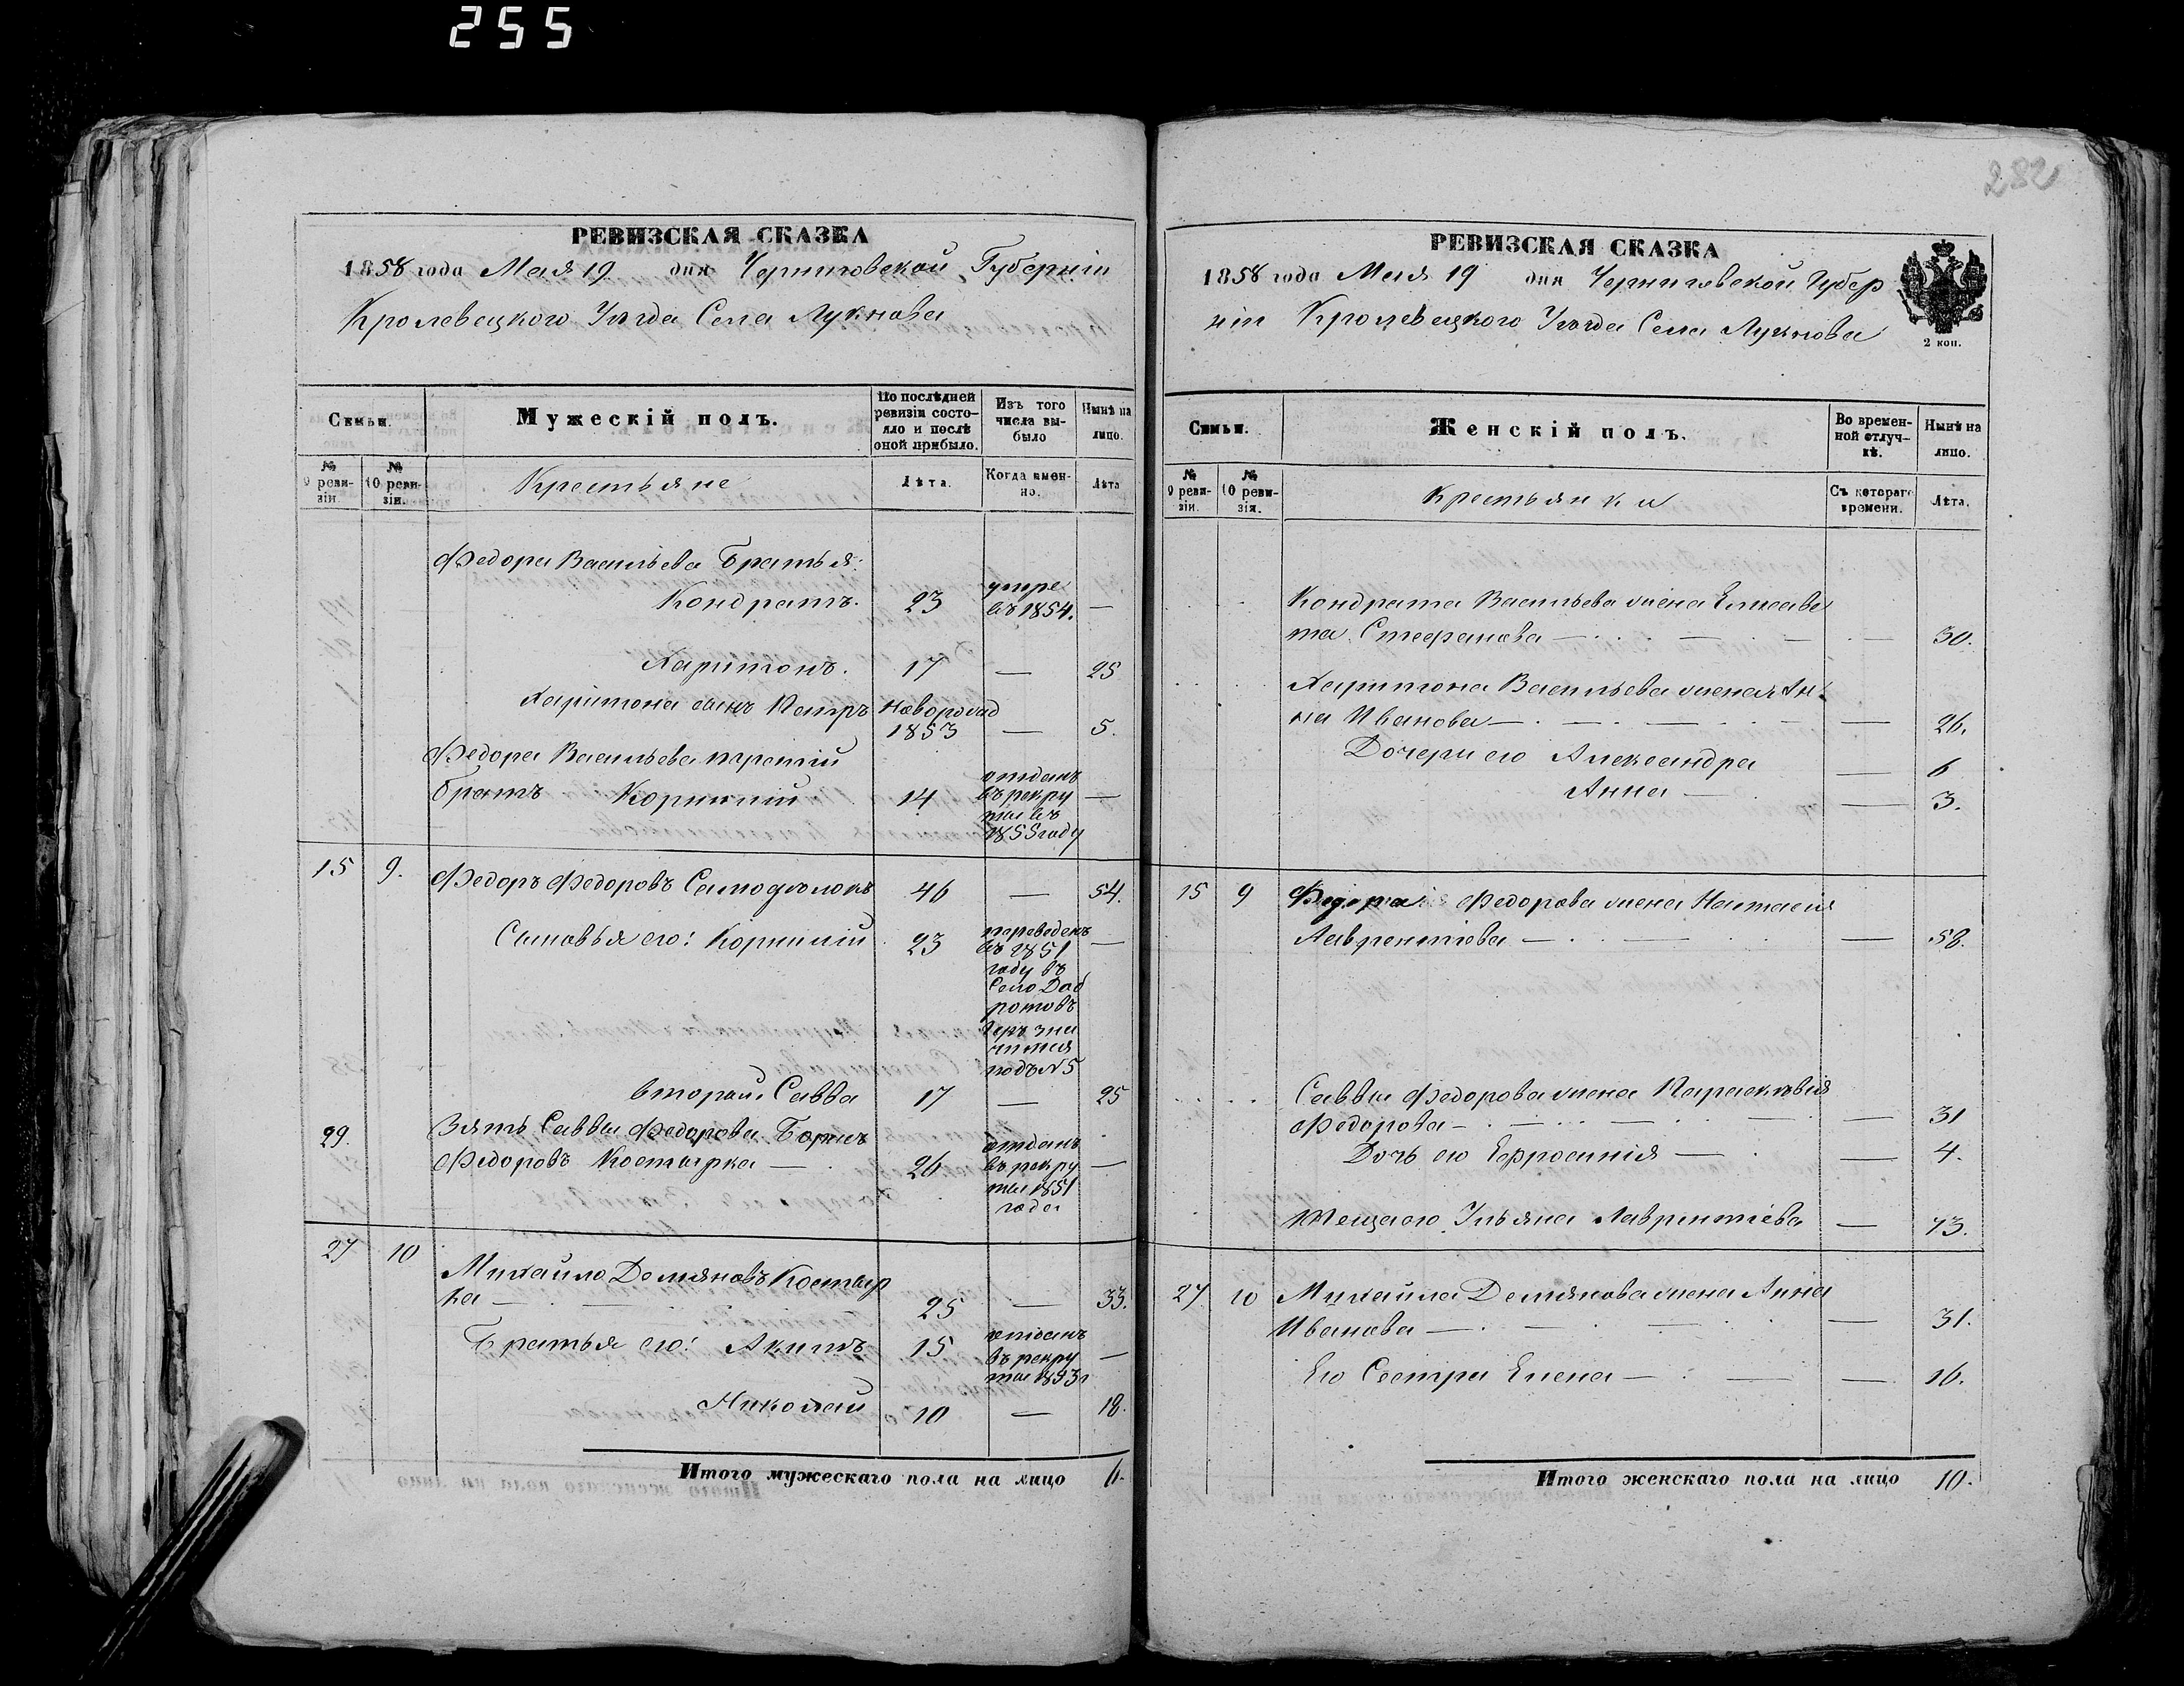 255
РЕВИЗСКАЯ СКАЗКА
1858 года Мая 19 дня Черниговской Губерніи
Кролевецкого Уѣзда Села Лукнова
Семьи.
Мужескій полъ.
По послѣдней
ревизіи состо-
яло и послѣ
оной прибыло.
Изъ того
числа вы-
было
Нынѣ на
лицо.
№
9 реви-
зіи.
№
10 реви-
зіи.
Крестьяне
Лѣта.
Когда имен-
но.
Лѣта
Федора Васильева Братья:
Кондратъ. 23 умре
въ 1854. —
Харитонъ. 17 — 25
Харитона сынъ Петръ новорожд
1853 — 5.
Федора Васильева третій
Братъ Корнилій 14 отданъ
въ рекру —
ты въ
1855 году
15 9. Федоръ Федоровъ 46 — 54.
Сыновья его: Корнилій 23 переведенъ
въ 1851 —
году въ
Село Доб
ротовъ
подъ №5
вторый Савва 17 — 25
29. Зять Саввы Федорова Борисъ
Федоровъ Костырка — 26 отданъ
въ рекру —
ты 1851
года
27 10 Михайло Демяновъ Костыр
ка — 25 — 33.
Братья его: Акимъ 15 отданъ
въ рекру —
ты 1853г
Николай 10 — 18.
Итого мужескаго пола на лицо 6.
282
РЕВИЗСКАЯ СКАЗКА
1858 года Мая 19 дня Черниговской Губер
ніи Кролевецкого Уѣзда Села Лукнова
2 коп.
Семьи.
Женскій полъ.
Во времен-
ной отлуч-
кѣ.
Нынѣ на
лицо.
№
9 реви-
зіи.
№
10 реви-
зія.
Крестьянки
Съ котораго
времени.
Лѣта.
Кондрата Васильева жена Елисаве
та Стефанова — — 30.
Харитона Васильева жена Ан
на Иванова — — 26.
Дочери его Александра — 6
Анна — — 3.
15 9 Федора Федорова жена Настасія
Лаврентіева — — 58.
Саввы Федорова жена Параскевія
Федорова — — 31
Дочь его Ефросинія — — 4.
Теща его Ульяна Лаврентіева — 73.
27 10 Михайла Демянова жена Анна
Иванова — — 31.
Его Сестра Елена — — 16.
Итого женскаго пола на лицо 10.